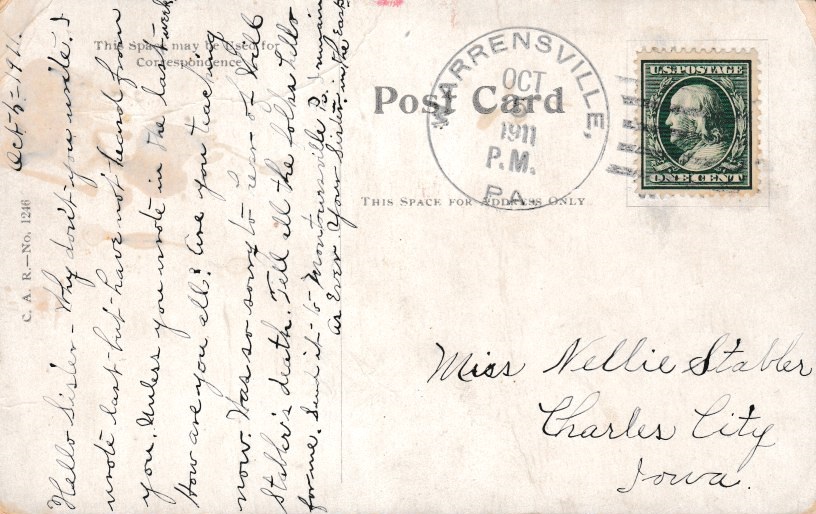 This Space may be Used for
Correspondence
Post Card
THIS SPACE FOR ADDRESS ONLY
C. A. R.—No. 1246
WARRENSVILLE,
OCT
5
1911
P.M.
PA.
U.S. POSTAGE
ONE CENT
Oct-5-1911.
Hello Sister - Why don't you write. I
wrote last but have not heard from
you. Unless you wrote in the last week,
How are you all? Are you teaching
now. Was so sorry to hear of
Stabler's death. Tell all the folks hello
for me. Send it to Montoursville Pa. I remain
as Ever Your Sister, in the East
Miss Nellie Stabler
Charles City
Iowa.